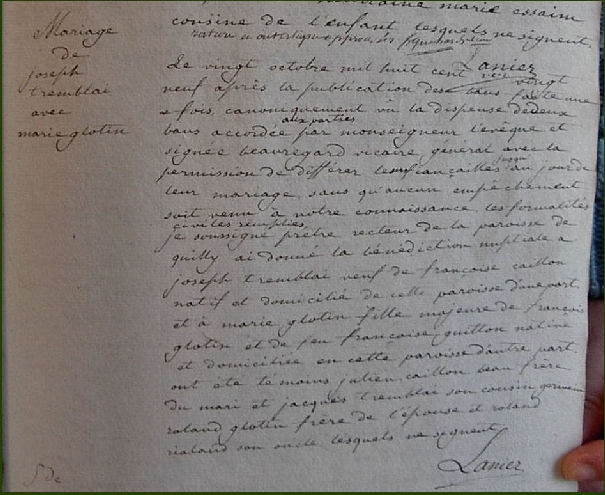 marie essaim
cousine de l'enfant lesquels ne signent
Lanier
Mariage
de
joseph
tremblai
avec
marie glotin
Le vingt octobre mil huit cent vingt
neuf après la publication des bans faite une
fois, canoniquement vu la dispense de deux
aux parties
bans accordée par monseigneur l'évêque et
signée beauregard vicaire général avec la
permission de différer les fiançailles jusqu'au jour de
leur mariage, sans qu'aucun empêchement
soit venu à notre connaissance les formalités
civiles remplies
je soussigné prêtre recteur de la paroisse de
quilly ai donné la bénédiction nuptiale a
joseph tremblai veuf de françoise caillon
natif et domicilié de cette paroisse d'une part.
et à marie glotin fille majeure de françois
glotin et de feu françoise guitton native
et domiciliée en cette paroisse d'autre part.
ont été temoins julien caillon beau frère
du mari et jacques tremblai son cousin germain
roland glotin frère de l'épouse et roland
rialand son oncle lesquels ne signent
Lanier